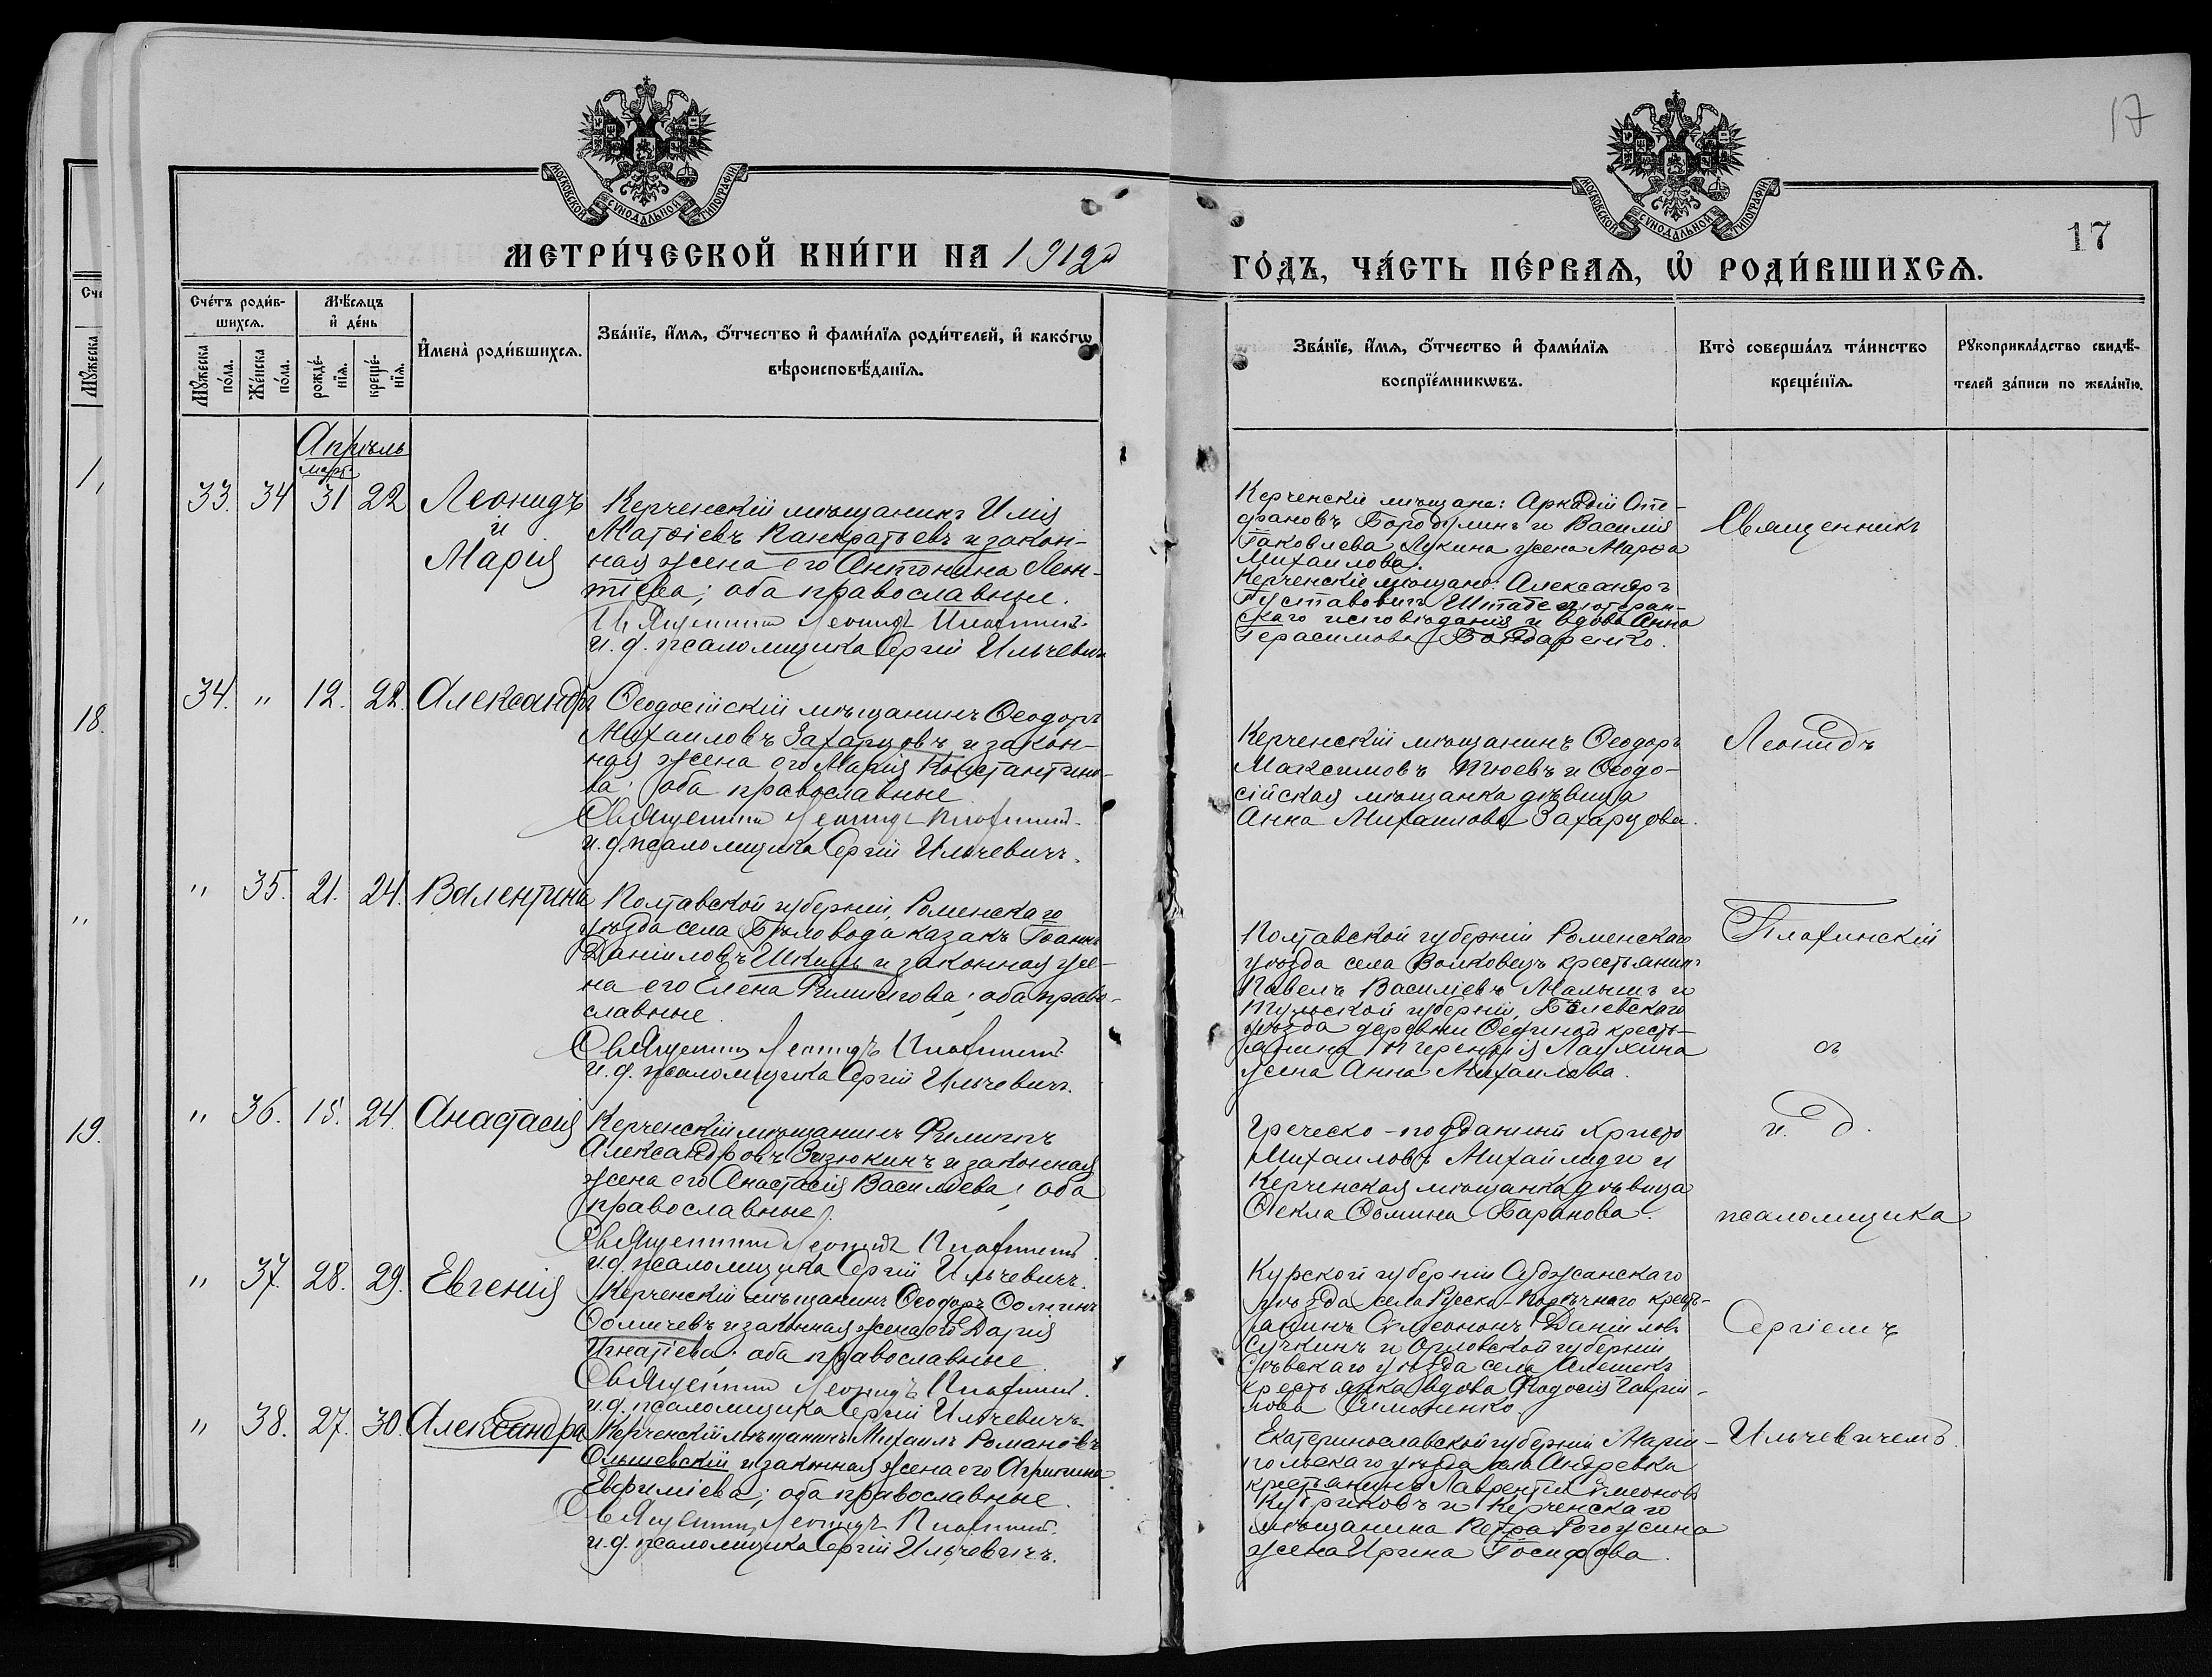 17
МОСКОВСКОЙ СѴНОДАЛЬНОЙ ТИПОГРАФІИ
МОСКОВСКОЙ СѴНОДАЛЬНОЙ ТИПОГРАФІИ
17
МЕТРИ́ЧЕСКОЙ КНИ́ГИ НА 1912й
ГО́ДЪ, ЧА́СТЬ ПЕ́РВАѦ, Ѡ҆ РОДИ́ВШИХСѦ.
Сче́тъ роди́в-
шихсѧ.
Мꙋ́жеска
по́ла.
Же́нска
по́ла.
Мѣ́сѧцъ
и҆ де́нь
рожде́-
нїѧ.
креще́-
нїѧ.
И҆мена̀ роди́вшихсѧ.
Зва́нїе, и҆́мѧ, ѻ҆́тчество и҆ фами́лїѧ роди́телей, и҆ како́гѡ
вѣроисповѣ́данїѧ.
Зва́нїе, и҆́мѧ, ѻ҆́тчество и҆ фами́лїѧ
воспрїе́мникѡвъ.
Кто̀ соверша́лъ та́инство
креще́нїѧ.
Рꙋкоприкла́дство свидѣ́-
телей за́писи по жела́нїю.
Апрѣль
мартъ
33. 34 31 22 Леонидъ
и
Марія
Керченскій мѣщанинъ Илія
Матѳіевъ Панкратьевъ и закон-
ная жена его Антонина Леон-
тіева; оба православные.
Священникъ Леонидъ Плахинскій.
и. д. псаломщика Сергій Ильчевичъ
Керченскіе мѣщане: Аркадій Сте-
фановъ Бородулинъ и Василія
Іаковлева Лукина жена Марѳа
Михаилова.
Керченскіе мѣщане: Александръ
Густавовичъ лютеран-
скаго исповѣданія и вдова Анна
Герасимова Бондаренко.
Священникъ
34. " 12. 22. Александръ
Ѳеодосійскій мѣщанинъ Ѳеодоръ
Михаиловъ Захарцовъ и закон-
ная жена его Марія Константино-
ва; оба православные
Священникъ Леонидъ Плахинскій.
и. д. псаломщика Сергій Ильчевичъ.
Керченскій мѣщанинъ Ѳеодоръ
Максимовъ и Ѳеодо-
сійская мѣщанка дѣвица
Анна Михаилова Захарцова.
Леонидъ
" 35. 21. 24. Валентина
Полтавской губерніи, Роменскаго
уѣзда села Бѣловода казакъ Іоаннъ
Даніиловъ и законная же-
на его Елена Филиппова; оба право-
славные.
Священникъ Леонидъ Плахинскій
и. д. псаломщика Сергій Ильчевичъ.
Полтавской губерніи Роменскаго
уѣзда села Волковецъ крестьянинъ
Павелъ Василіевъ Малышъ и
Тульской губерніи, Бѣлевскаго
уѣзда деревни кресть-
янина Лаухина
жена Анна Михаилова.
Плахинскій
съ
" 36. 15. 24. Анастасія
Керченскій мѣщанинъ Филиппъ
Александровъ Зизюкинъ и законная
жена его Анастасія Василіева; оба
православные.
Священникъ Леонидъ Плахинскій
и. д. псаломщика Сергій Ильчевичъ.
Греческо-подданный Христо
Михаиловъ Михайлиди и
Керченская мѣщанка дѣвица
Ѳекла Ѳомина Баранова.
и. д.
псаломщика
" 37. 28. 29. Евгенія
Керченскій мѣщанинъ Ѳеодоръ Ѳоминъ
Ѳомичевъ и законная жена его Дарія
Игнатіева; оба православные.
Священникъ Леонидъ Плахинскій.
и. д. псаломщика Сергій Ильчевичъ
Курской губерніи Суджанскаго
уѣзда села Русско-Порѣчнаго кресть-
янинъ Даніиловъ
Сучкинъ и Орловской губерніи
Сѣвскаго уѣзда села Алешекъ
крестьянка вдова Ѳеодосія Гавріи-
лова Симоненко.
Сергіемъ
" 38. 27. 30. Александра
Керченскій мѣщанинъ Михаилъ Романовъ
Ольшевскій и законная жена его Агрипина
Евфиміева; оба православные.
Священникъ Леонидъ Плахинскій.
и. д. псаломщика Сергій Ильчевичъ.
Екатеринославской губерніи Маріу-
польскаго уѣзда села Андреевки
крестьянинъ Лаврентій Симеоновъ
и Керченскаго
мѣщанина Петра Рогожина
жена Ирина Іосифова.
Ильчевичемъ.